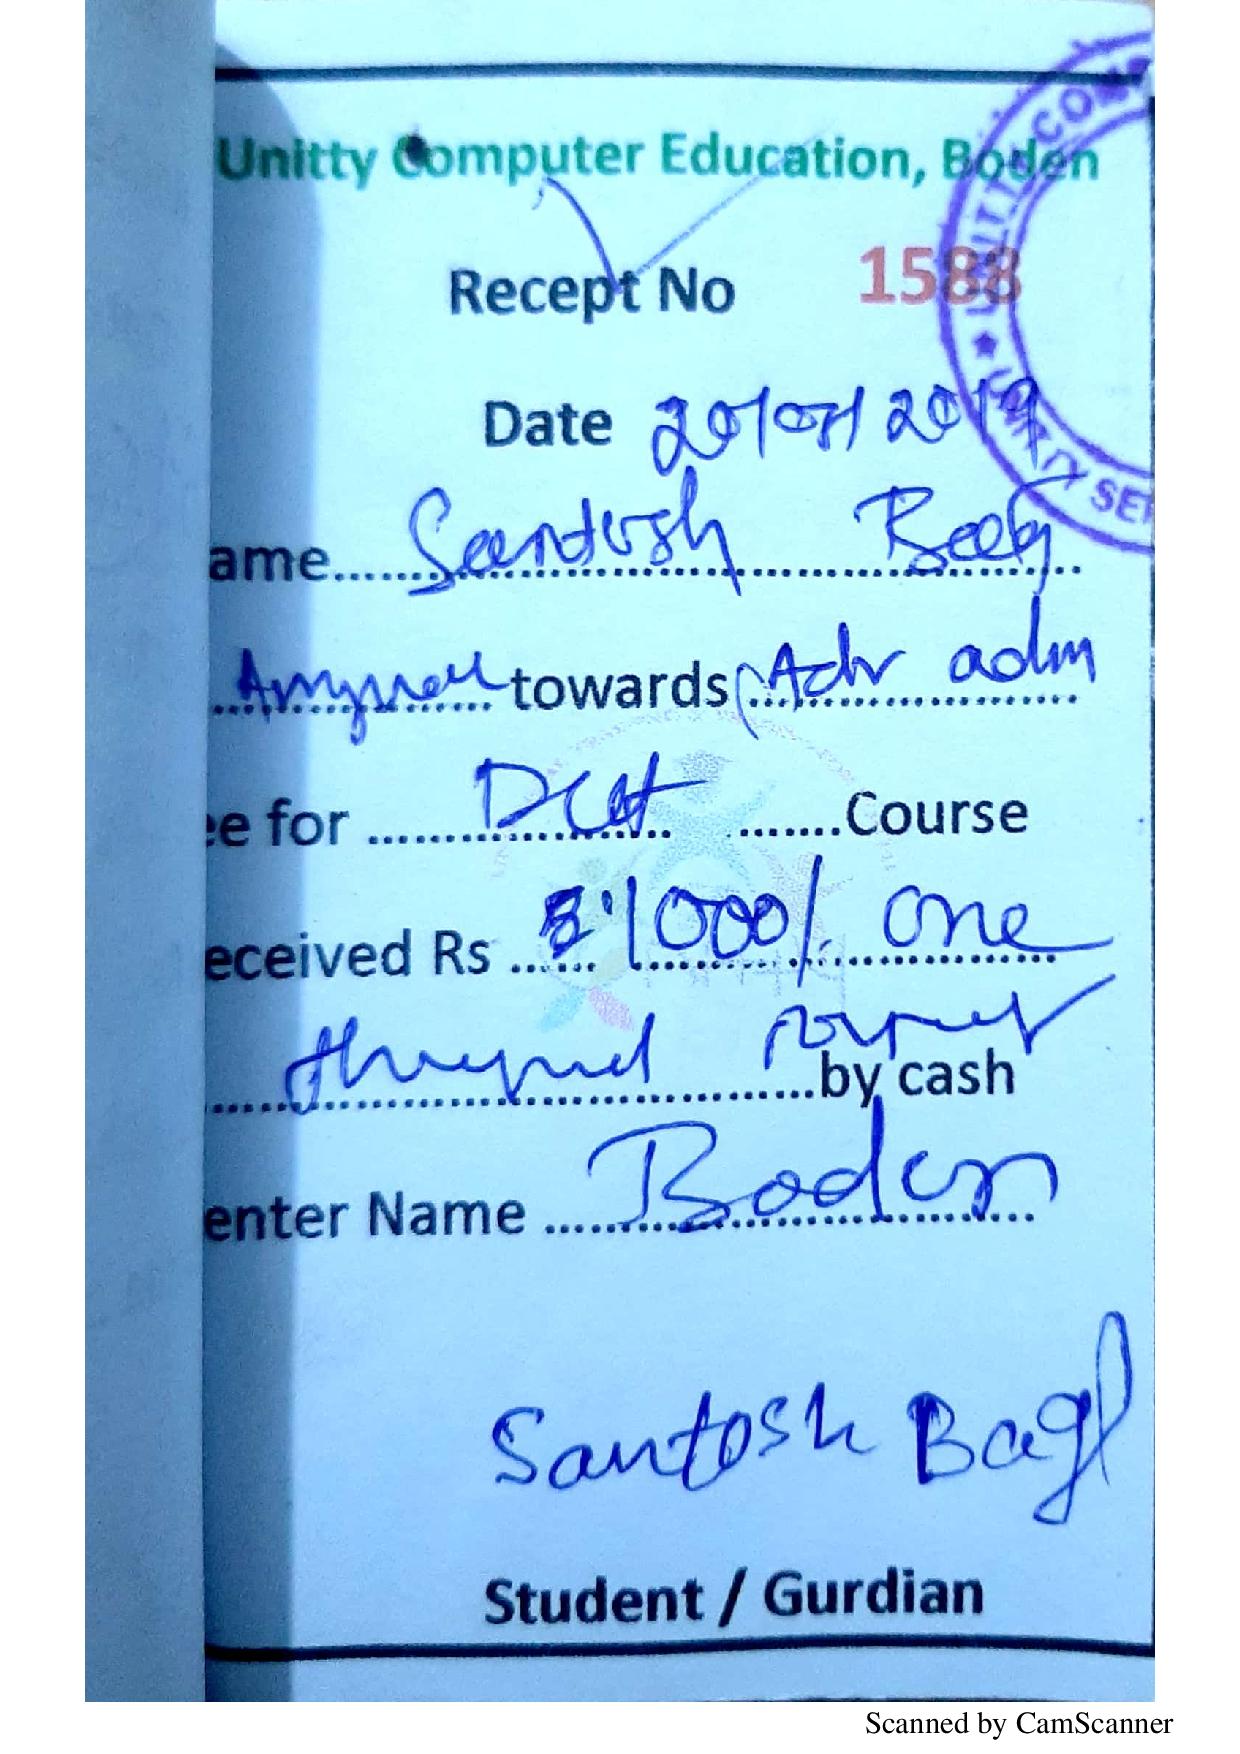 Unitty Computer Education, Boden
Recept No 1588
Date 20/07/2019
ame...... Santosh Bag
towards Adv adm
ee for ...... DCA ......Course
eceived Rs ...... 1000/. one
thousand rupees by cash
enter Name ...... Boden
Santosh Bag
Student / Gurdian
Scanned by CamScanner